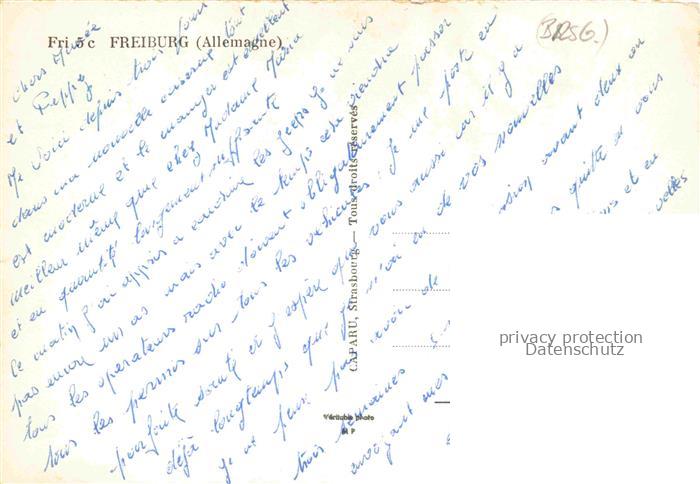 Fri 5c FREIBURG (Allemagne)
(BRSG.)
chers Mimie
et Peppy
Me voici depuis trois jours
dans ma nouvelle caserne tout
est moderne et le manger est excellent
meilleur même que chez Madame Maria
et en quantité largement suffisante
ce matin j'ai appris a conduire les jeeps je ne suis
pas encore un as mais avec le temps cela viendra
tous les operateurs radio doivent obligatoirement passer
tous les permis sur tous les vehicules. Je me porte en
parfaite santé et j'espère que vous aussi car il y a
déjà longtemps que je n'ai eu de vos nouvelles
Je ne peux pas avoir de sion avant deux ou
trois semaines quitte en vous
envoyant mes
CAPARU, Strasbourg — Tous droits réservés
Véritable photo
M P
privacy protection
Datenschutz